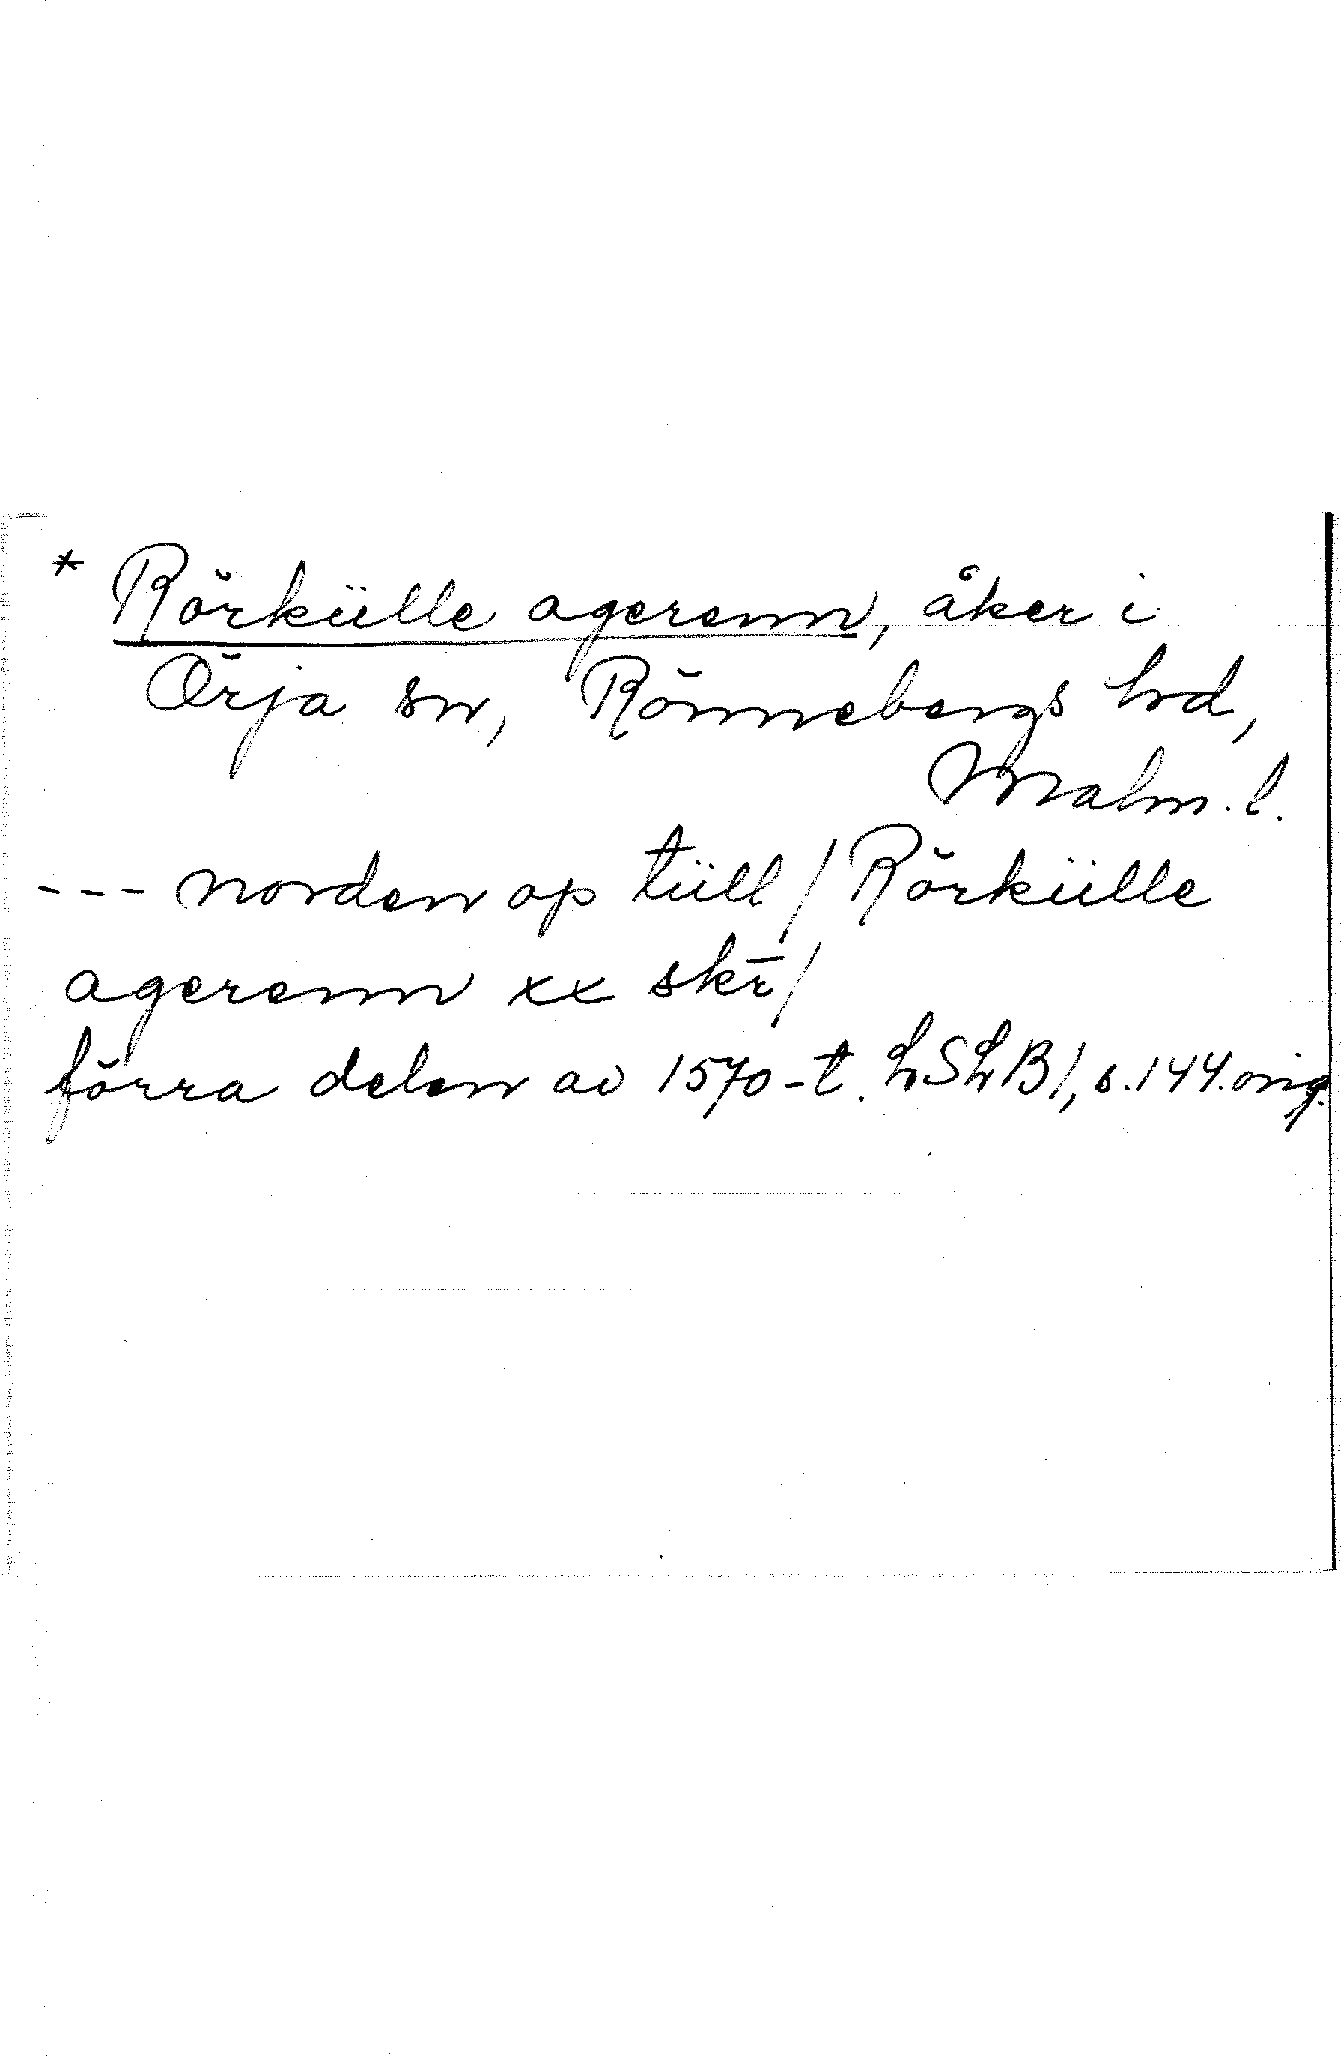 * Rörkülle agerenn, åker i
Örja sn, Rönnebergs hd,
Malm. l.
--- norden op tüll / Rörkülle
agerenn xx skr̄ /
förra delen av 1570-t. LSLB 1, s. 144. orig.